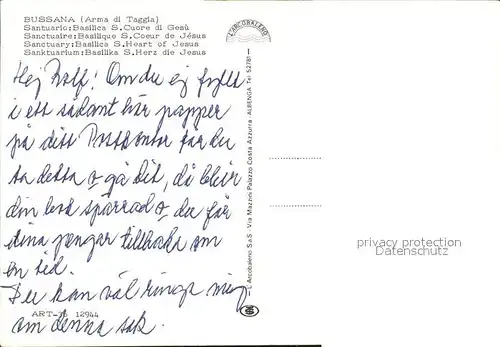 BUSSANA (Arma di Taggia)
Santuario: Basilica S. Cuore di Gesù
Sanctuaire: Basilique S. Coeur de Jésus
Sanctuary: Basilica S. Heart of Jesus
Sanktuarium: Basilika S. Herz die Jesus
Hej Rolf! Om du ej fyllt
i ett sådant här papper
på ditt Postkontor får du
ta detta o gå dit, då blir
din bok spärrad o du får
dina pengar tillbaka om
en tid.
Du kan väl ringa mig
om denna sak.
ART-36 12944
L'ARCOBALENO
L'Arcobaleno S.a.S - Via Mazzini Palazzo Costa Azzurra - ALBENGA Tel 52781
privacy protection
Sammleraktiv